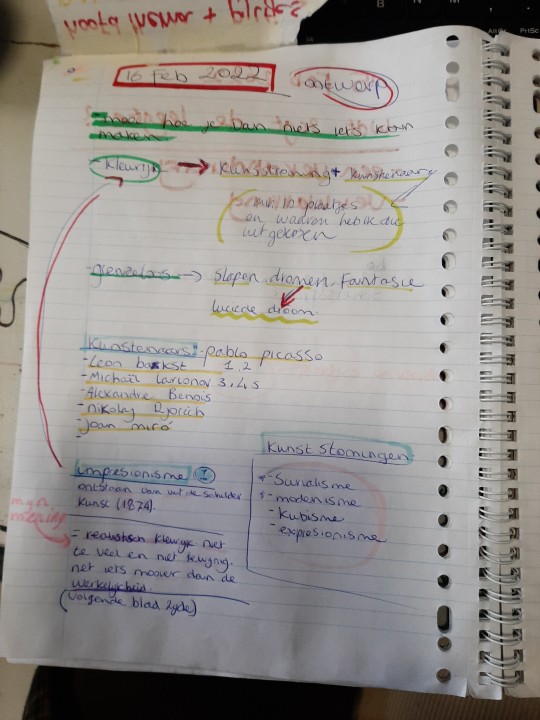 hoofd thema + Pijltjes
16 feb 2022 ontwerp
hoe je van niets iets kan
maken
Kleurijk → kunststroming + kunstenaars
min 10 plaatjes
en waarom heb ik die
uit gekozen
grenzeloos → Slapen, dromen, Fantasie
luciede droom.
Kunstenaars: - pablo picasso
- Leon bakst 1,2
- Michail Larionov 3,4,5
- Alexandre Benois
- nikolaj Rjorich
- joan miró
-
Kunst Stomingen
- Surialisme
- modenisme
- Kubisme
- expresionisme
impresionisme 1
ontstaan van uit de schilder
kunst (1874).
mijn
mening
= realistisch kleurijk niet
te veel en niet te wijnig.
net iets mooier dan de
werkelijkheid.
(volgende blad zijde)